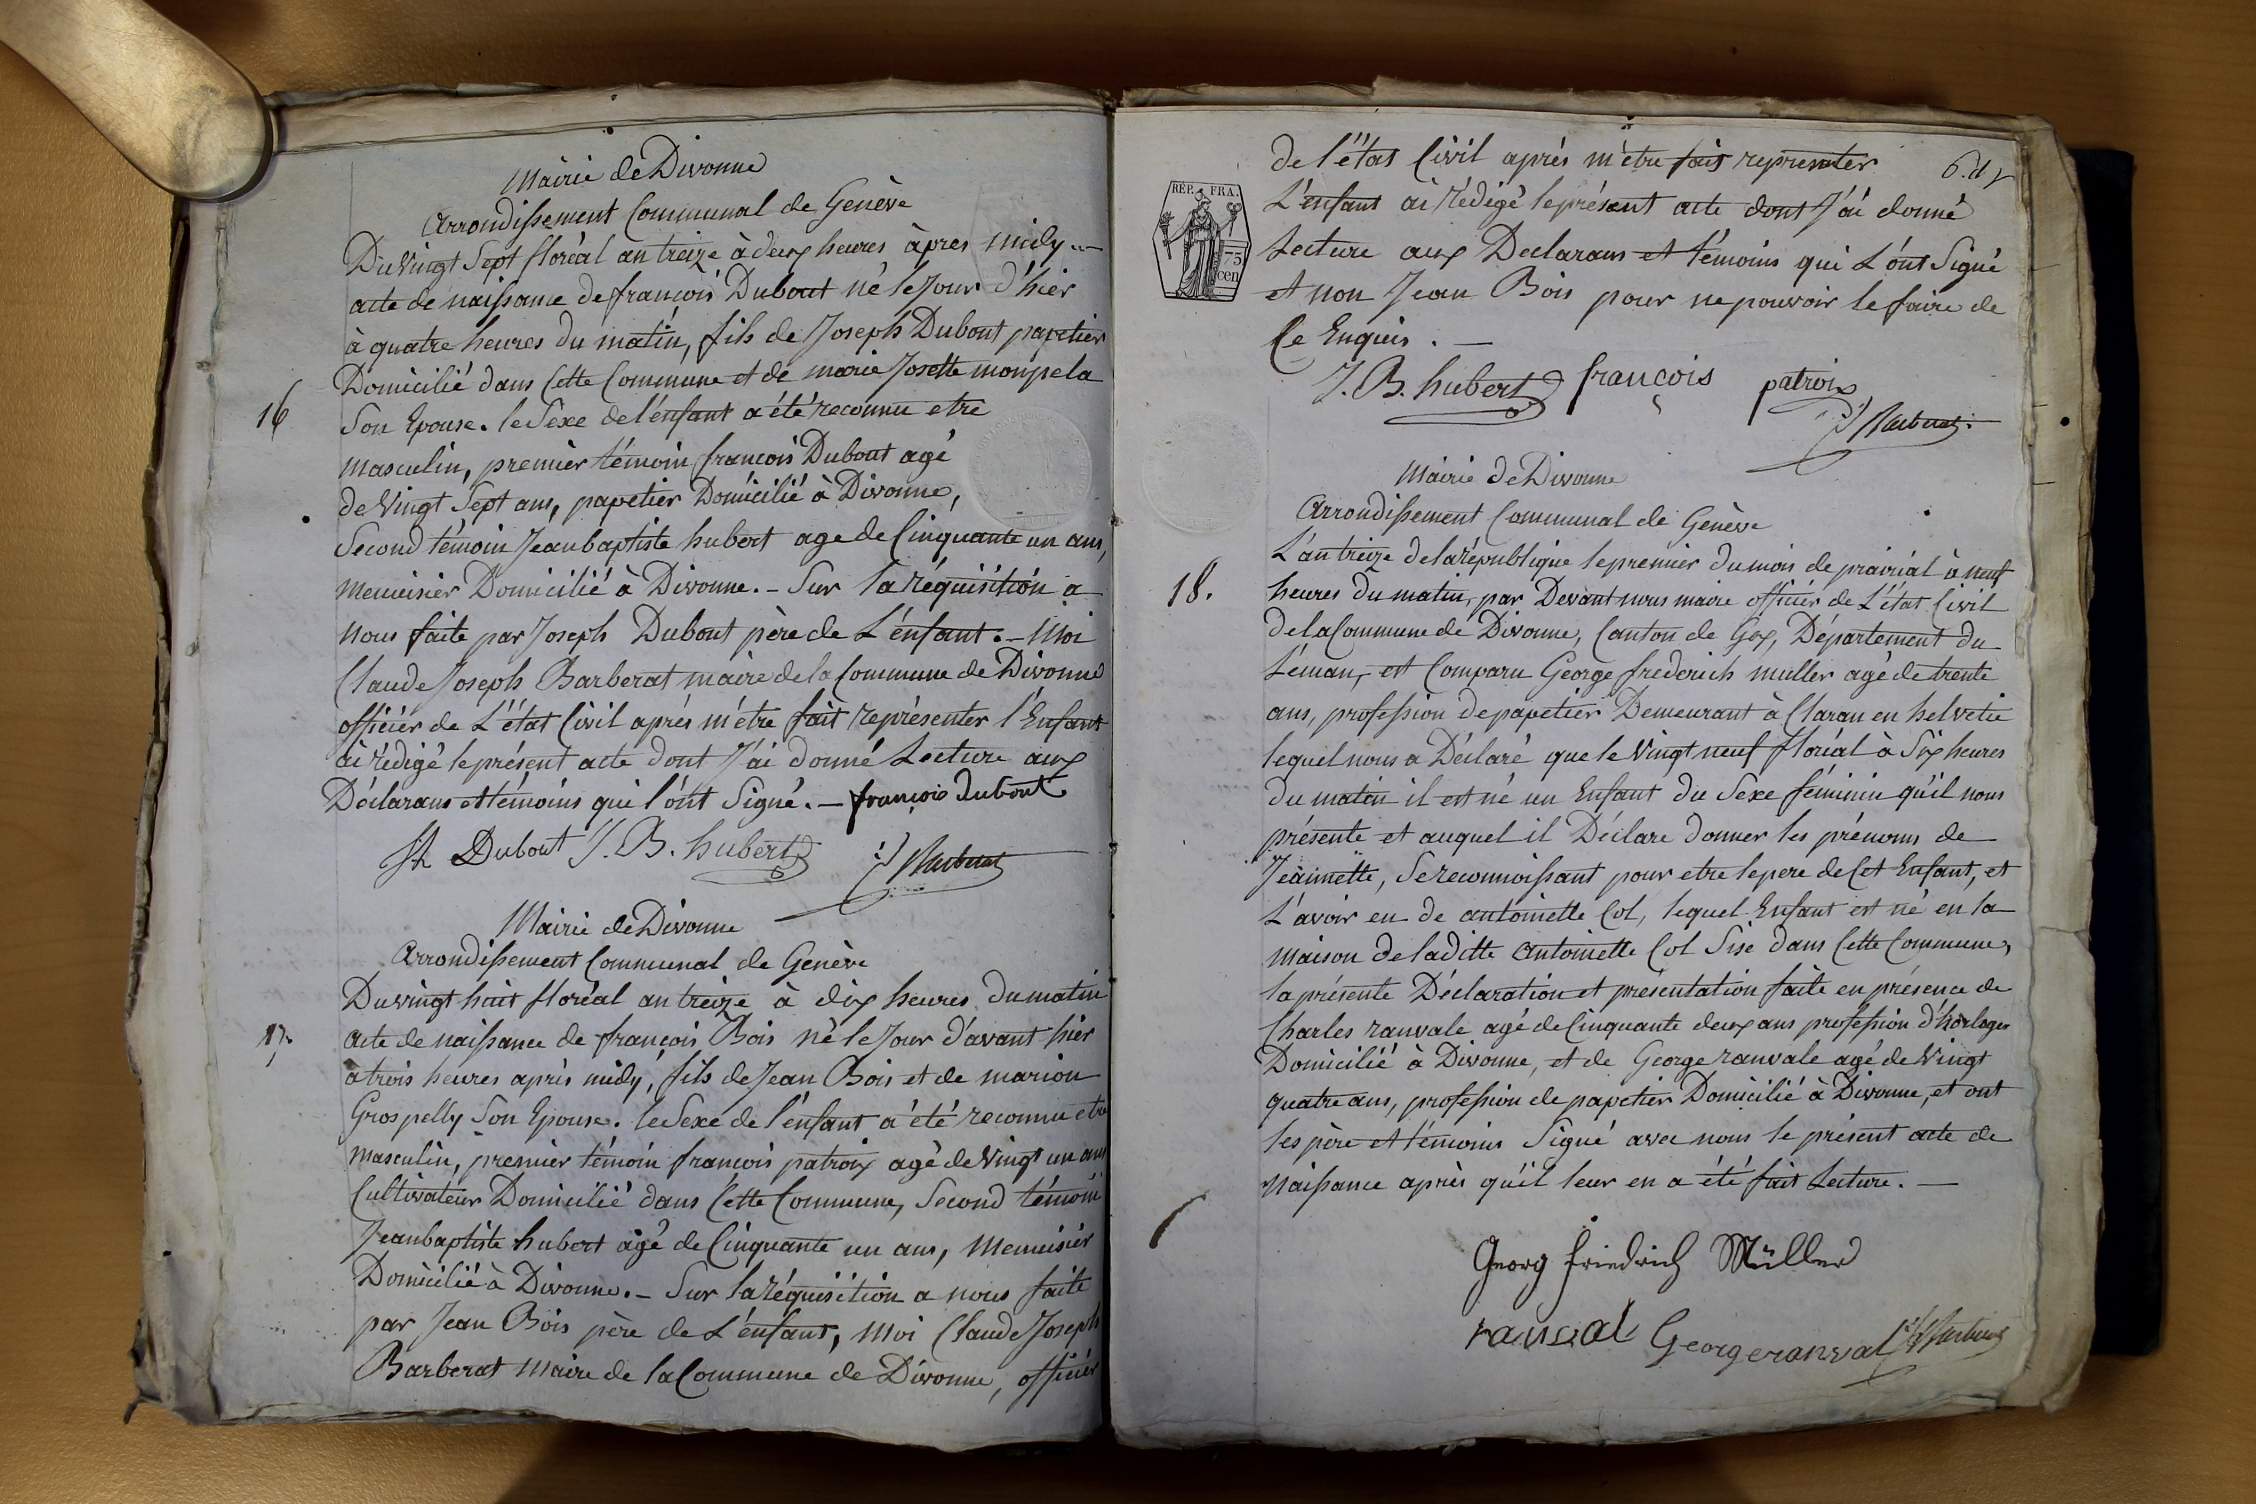 Mairie de Divonne
Arrondissement Communal de Genève
Du Vingt Sept floréal an treize à deux heures àpres midy
acte de naissance de françois Dubout né le Jour d'hier
à quatre heures du matin, fils de Joseph Dubout papetier
Domicilié dans Cette Commune et de marie Josette monpela
16
Son Epouse. le Sexe de l'énfant a été reconnu etre
masculin, premier témoin françois Dubout agé
de Vingt Sept ans, papetier Domicilié à Divonne,
Second témoin Jeanbaptiste hubert age de Cinquante un ans,
menuisier Domicilié à Divonne. - Sur la réquisition a
nous faite par Joseph Dubout père de L'énfant. - Moi
Claude Joseph Barberat maire de la Commune de Divonne
officiér de L'état Civil aprés m'étre fait représenter l'Enfant
ai rédigé le présent acte dont J'ai donné Lecture aux
Déclarans et témoins qui l'ont Signé. - françois dubout
Jh Dubout J. B. hubert Barberat
Mairie de Divonne
Arrondissement Communal de Genève
Du vingt huit floréal an treize à dix heures du matin
17.
acte de naissance de françois Bois né le Jour d'avant hier
a trois heures aprés midy, fils de Jean Bois et de marion
Grospelly Son Epouse. le Sexe de l'énfant a été reconnu etre
masculin, premier témoin françois patroix agé de Vingt un ans
Cultivateur Domicilié dans Cette Commune, Second témoin
Jeanbaptiste hubert agé de Cinquante un ans, Menuisiér
Domicilié à Divonne. - Sur la réquisition a nous faite
par Jean Bois père de L'énfant, Moi Claude Joseph
Barberat Maire de la Commune de Divonne, officiér
de l'état Civil aprés m'etre fait representer
REP. FRA.
75
cen
L'enfant ai rédigé le présent acte dont J'ai donné
Lecture aux Declarans et témoins qui L'ont Signé
et non Jean Bois pour ne pouvoir le faire de
Ce Enquis. -
J. B. hubert françois patroix
Barberat
Mairie de Divonne
Arrondissement Communal de Genève
L'an treize de la république le premier du mois de prairial à neuf
18.
heures du matin, par Devant nous maire officiér de L'état Civil
de la Commune de Divonne, Canton de Gex, Département du
Léman, est Comparu George frederich muller agé de trente
ans, profession de papetier Demeurant à Claran en helvetie
lequel nous a Déclaré que le Vingt neuf floréal à Six heures
du matin il est né un Enfant du Sexe féminin qu'il nous
présente et auquel il Déclare donner les prénoms de
Jeannette, Se reconnoissant pour etre le pere de Cet Enfant, et
L'avoir eu de antoinette Col, lequel Enfant est né en la
maison de laditte Antoinette Col Sise dans Cette Commune,
la présente Déclaration et présentation faite en présence de
Charles ranvale agé de Cinquante deux ans profession d'horloger
Domicilié à Divonne, et de George ranvale agé de Vingt
quatre ans, profession de papetier Domicilié à Divonne, et ont
les père et témoins Signé avec nous le présent acte de
Naissance aprés qu'il leur en a été fait Lecture. -
Georg friedrich Müller
ranval George ranval Barberat